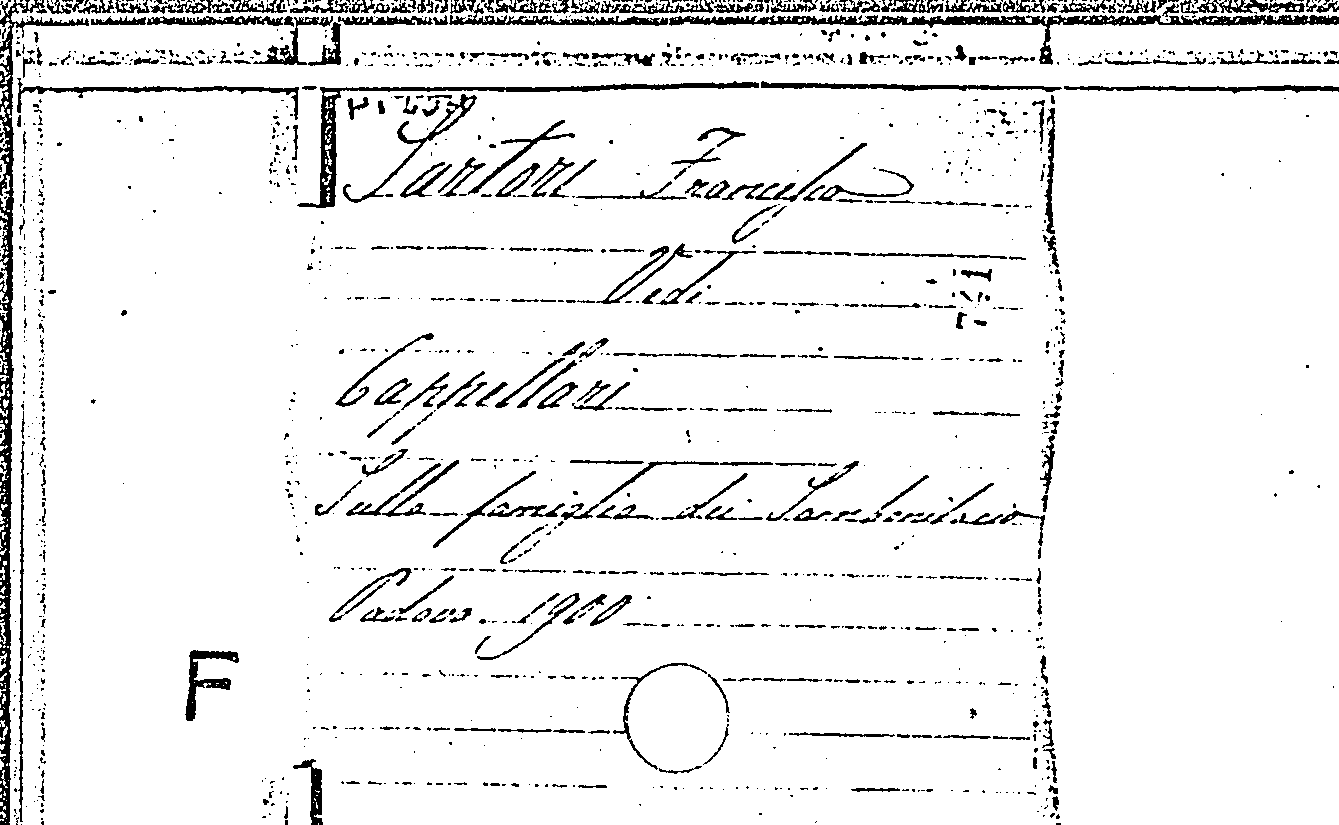 Sartori Francesco
Vedi
Cappellari
Sulla famiglia dei Sambonifacio
Padova. 1900
F